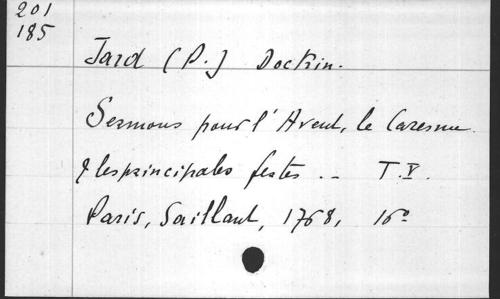 201
185
Jard (P.) Doctrin.
Sermons pour l'Avent, le Caresme
& les principales festes .. T. V.
Paris, Saillant, 1768, 16°